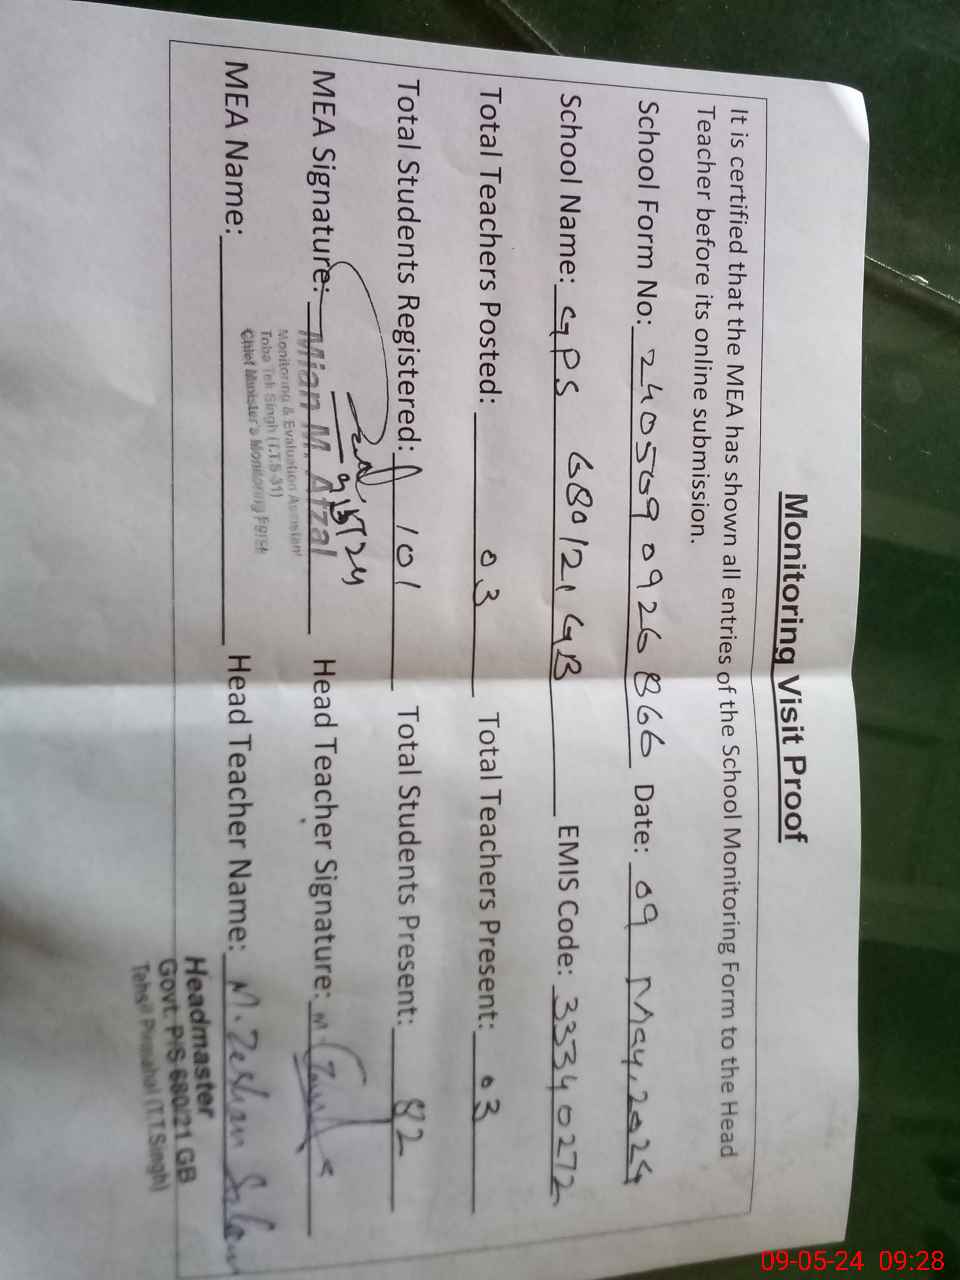 Monitoring Visit Proof
It is certified that the MEA has shown all entries of the School Monitoring Form to the Head
Teacher before its online submission.
School Form No: 240509 0926 866 Date: 09 May, 2024
School Name: GPS 680/21 GB EMIS Code: 33340272
Total Teachers Posted: 03 Total Teachers Present: 03
Total Students Registered: 101 Total Students Present: 82
MEA Signature: 9/5/24 Head Teacher Signature:
Mian M. Afzal
Monitoring & Evaluation Assistant
Toba Tek Singh (T.T.S-31)
Chief Minister's Monitoring Force
MEA Name: Head Teacher Name: M. Zeshan
Headmaster
Govt. P/S 680/21 GB
Tehsil Pirmahal (T.T.Singh)
09-05-24 09:28